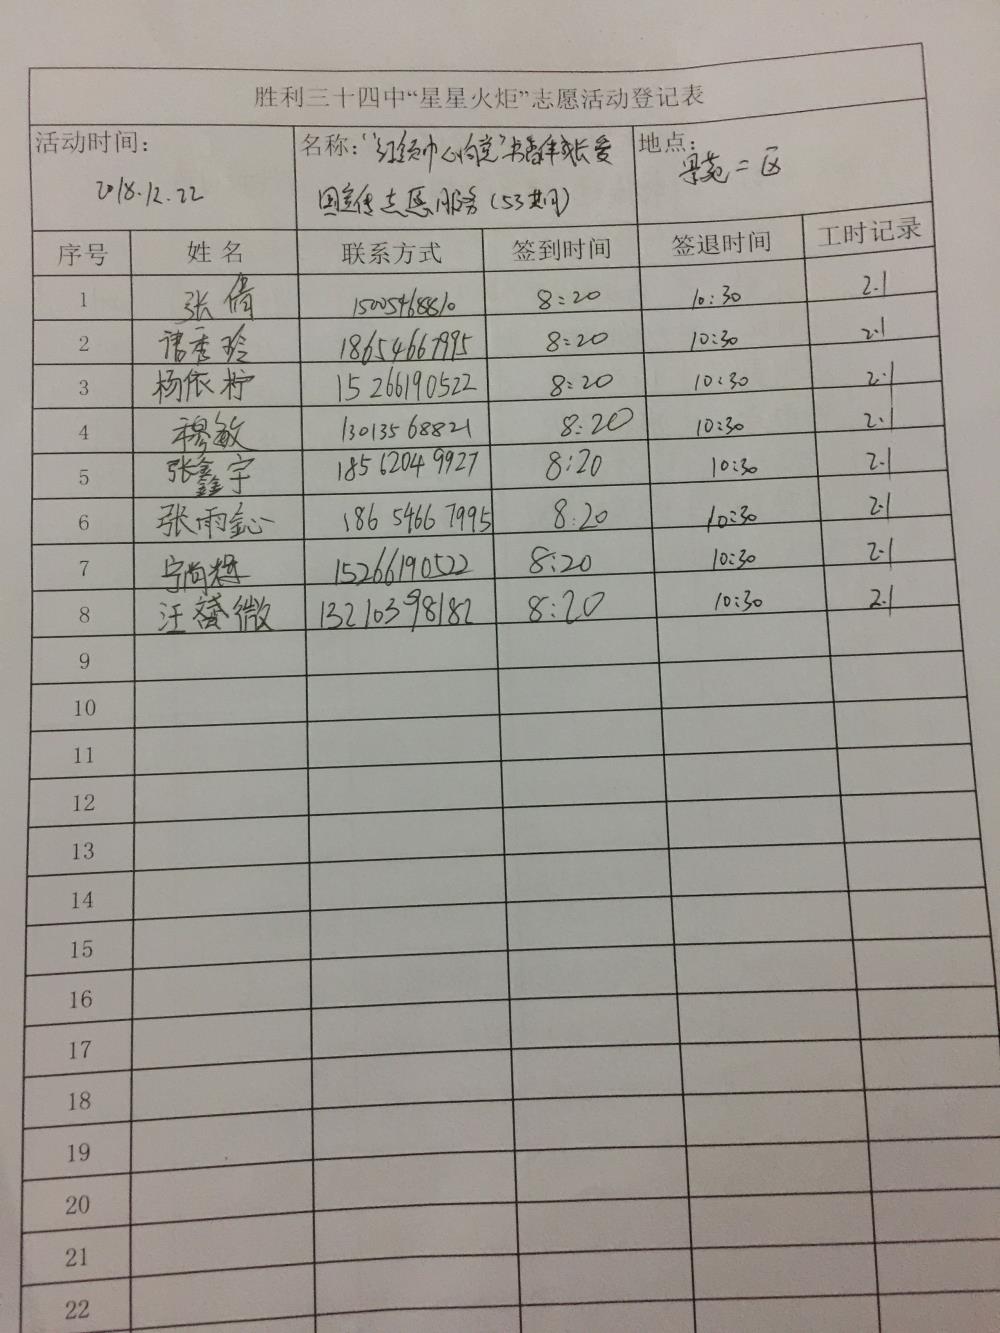 胜利三十四中“星星火炬”志愿活动登记表
活动时间： 名称：“红领巾心向党”书香伴成长爱 地点：
2018.12.22 国宣传志愿服务（53期） 景苑二区
序号 姓名 联系方式 签到时间 签退时间 工时记录
1 张倩 15005468810 8:20 10:30 2.1
2 诸秀玲 18654667995 8:20 10:30 2.1
3 杨依柠 15266190522 8:20 10:30 2.1
4 穆敏 13013568821 8:20 10:30 2.1
5 张鑫宇 18562049927 8:20 10:30 2.1
6 张雨 18654667995 8:20 10:30 2.1
7 宁尚 15266190522 8:20 10:30 2.1
8 汪 微 13210398182 8:20 10:30 2.1
9
10
11
12
13
14
15
16
17
18
19
20
21
22